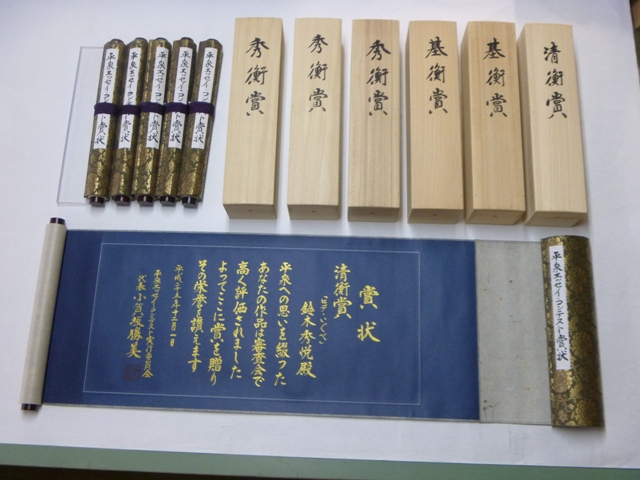 平泉エッセイコンテスト賞状
平泉エッセイコンテスト賞状
平泉エッセイコンテスト賞状
平泉エッセイコンテスト賞状
平泉エッセイコンテスト賞状
秀衡賞
秀衡賞
秀衡賞
基衡賞
基衡賞
清衡賞
賞状
清衡賞
鈴木秀悦殿
平泉への思いを綴った
あなたの作品は審査会で
高く評価されました
よってここに賞を贈り
その栄誉を讃えます
平成二十五年十二月一日
平泉エッセイコンテスト実行委員会
代表
勝美
平泉エッセイコンテスト賞状